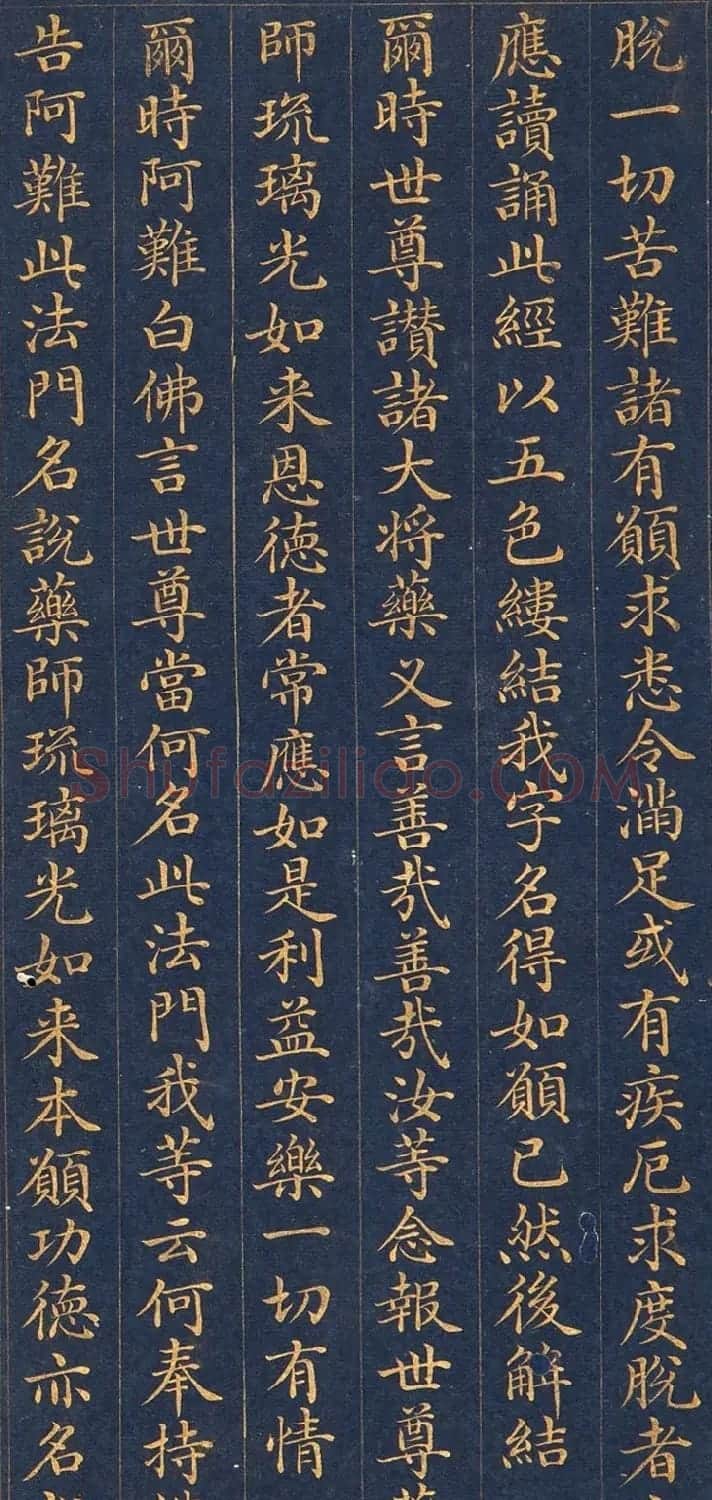 脱一切苦難諸有願求悉令滿足或有疾厄求度脱者
應讀誦此經以五色縷結我字名得如願已然後解結
爾時世尊讃諸大将藥叉言善哉善哉汝等念報世尊
師琉璃光如来恩徳者常應如是利益安樂一切有情
爾時阿難白佛言世尊當何名此法門我等云何奉持
告阿難此法門名説藥師琉璃光如来本願功徳亦名
Shufaziliao.COM